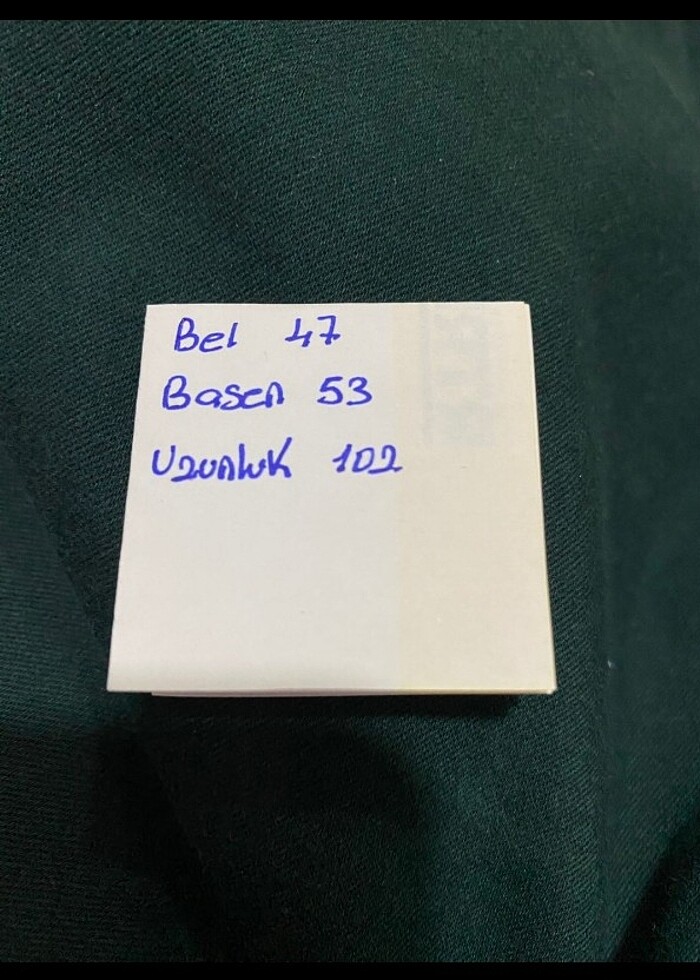 Bel 47
Basen 53
Uzunluk 102